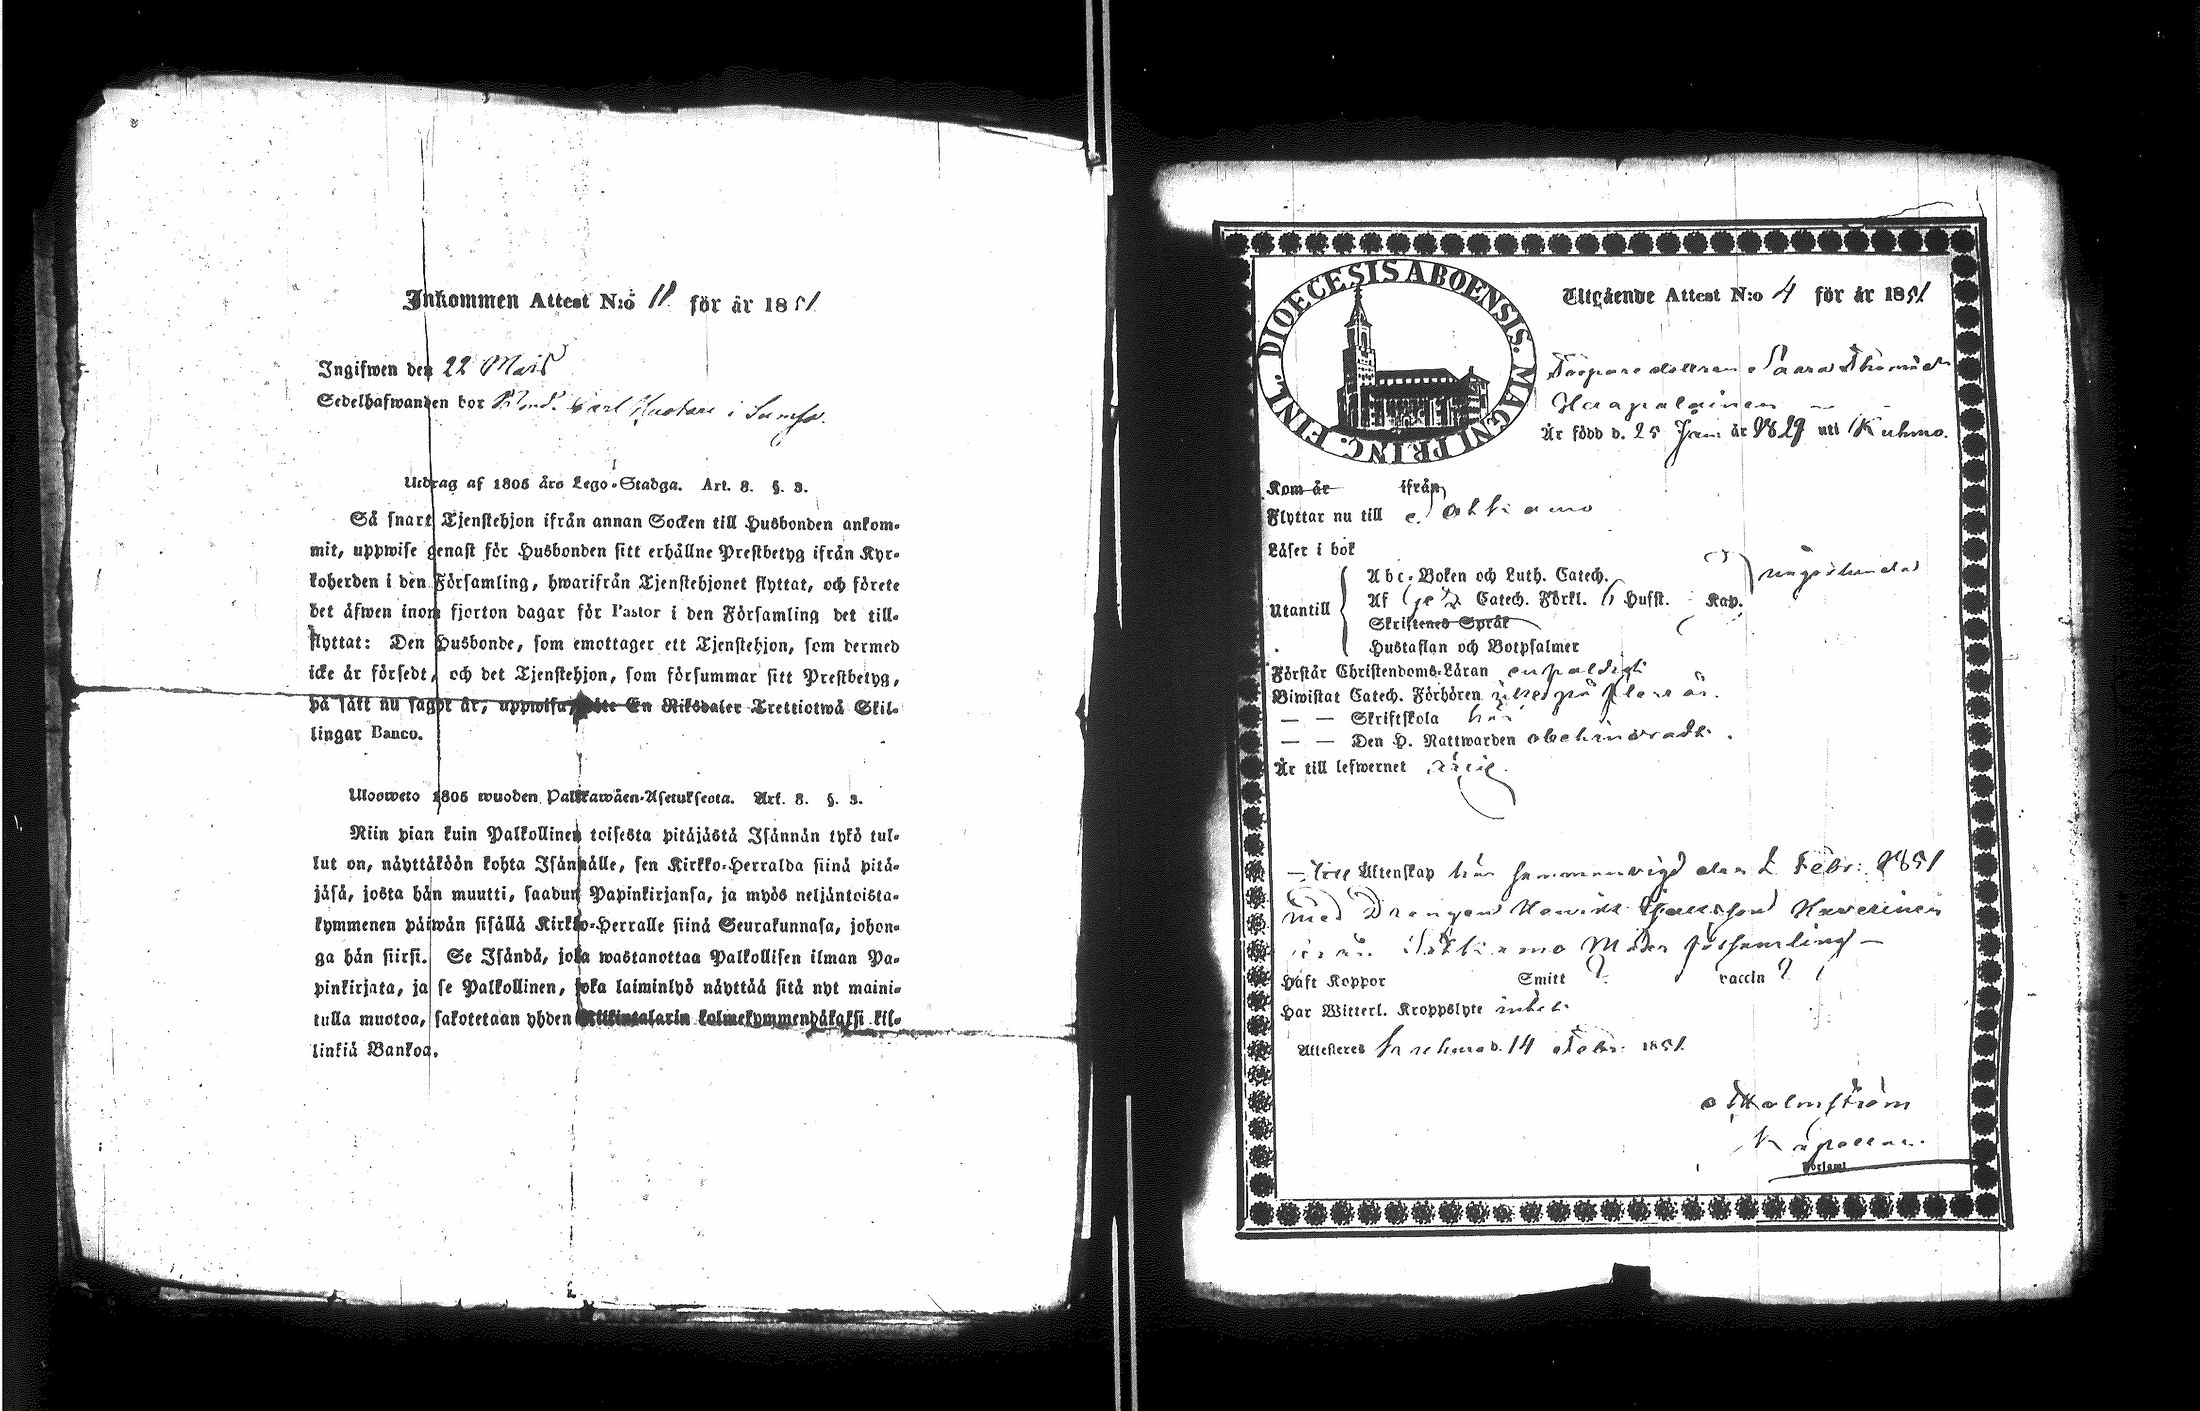 Inkommen Attest N:o 11 för år 1851
Ingifwen den 22 Maij
Sedelhafwanden bor Carl i
Utdrag af 1805 års Lego-Stadga. Art. 8. §. 3.
Så snart Tjenstehjon ifrån annan Socken till Husbonden ankom-
mit, uppwise genast för Husbonden sitt erhållne Prestbetyg ifrån Kyr-
koherden i den Församling, hwarifrån Tjenstehjonet flyttat, och förete
det äfwen inom fjorton dagar för Pastor i den Församling det till-
flyttat: Den Husbonde, som emottager ett Tjenstehjon, som dermed
icke är försedt, och det Tjenstehjon, som försummar sitt Prestbetyg,
på sätt nu sagdt är, uppwisa, böte En Riksdaler Trettiotwå Skil-
lingar Banco.
Ulosweto 1805 wuoden Palkkawäen-Asetuksesta. Art. 8. §. 3.
Niin pian kuin Palkollinen toisesta pitäjästä Isännän tykö tul-
lut on, näyttäköön kohta Isännälle, sen Kirkko-Herralda siinä pitä-
jäsä, josta hän muutti, saadun Papinkirjansa, ja myös neljäntoista-
kymmenen päiwän sisällä Kirkko-Herralle siinä Seurakunnasa, johon-
ga hän siirsi. Se Isändä, joka wastanottaa Palkollisen ilman Pa-
pinkirjata, ja se Palkollinen, joka laiminlyö näyttää sitä nyt maini-
tulla muotoa, sakotetaan yhden Riikintalarin kolmekymmenpäkaksi kil-
linkiä Bankoa.
DIOECESIS ABOENSIS. MAGNI PRINC. FINL.
Utgående Attest N:o 4 för år 1851
Torpare dottren Saara Thomasdr
Haapalainen
Är född d. 25 Jan: år 1829 uti Kuhmo.
Kom år ifrån
Flyttar nu till Sotkamo
Läser i bok
Abc-Boken och Luth. Catech.
Utantill Af Catech. Förkl. Husst. Kap.
Skriftenes Språk
Hustaflan och Botpsalmer
Förstår Christendoms-Läran enfaldigt
Biwistat Catech. Förhören på flere år.
— — Skriftskola här
— — Den H. Nattwarden obehindradt.
Är till lefwernet
Äktenskap här sammanvigd den 2 Febr: 1851
med Drängen Henrik Haverinen
ifrån Sotkamo Moder församling —
Haft Koppor Smitt ? vaccin ?
Har Witterl. Kroppslyte intet
Attesteres Kuhmo d. 14 Febr: 1851.
Malmström
Kapellan.
Församl